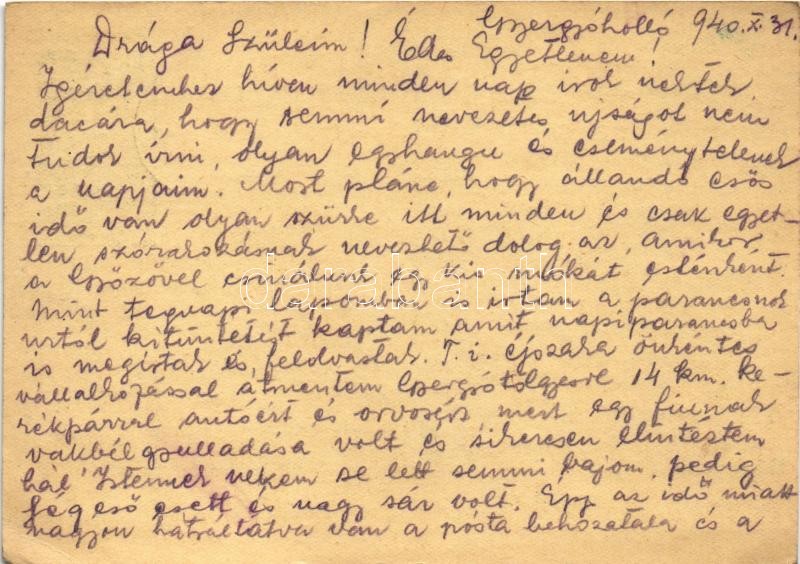 Gyergyóholló 940.X.31.
Drága Szüleim! Édes Egyetlenem!
Igéretemhez híven minden nap irok nektek
dacára, hogy semmi nevezetes ujságot nem
tudok irni, olyan egyhangu és eseménytelenek
a napjaim. Most pláne, hogy állandó esős
idő van olyan szürke itt minden és csak egyet-
len szórakozásnak nevezhető dolog az, amikor
a Győzővel csinálunk egy kis mókát esténként.
Mint tegnapi lapomban is irtam a parancsnok
urtól kitüntetést kaptam amit napiparancsba
is megirtak és felolvastak. T. i. éjszaka önkéntes
vállalkozással átmentem Gyergyótölgyesre 14 km. ke-
rékpárral autóért és orvosért mert egy fiunak
vakbélgyulladása volt és sikeresen elintéztem
hál' Istennek nekem se lett semmi bajom, pedig
jég eső esett és nagy sár volt. Épp az idő miatt
nagyon hátráltatva van a posta behozatala és a
darabanth